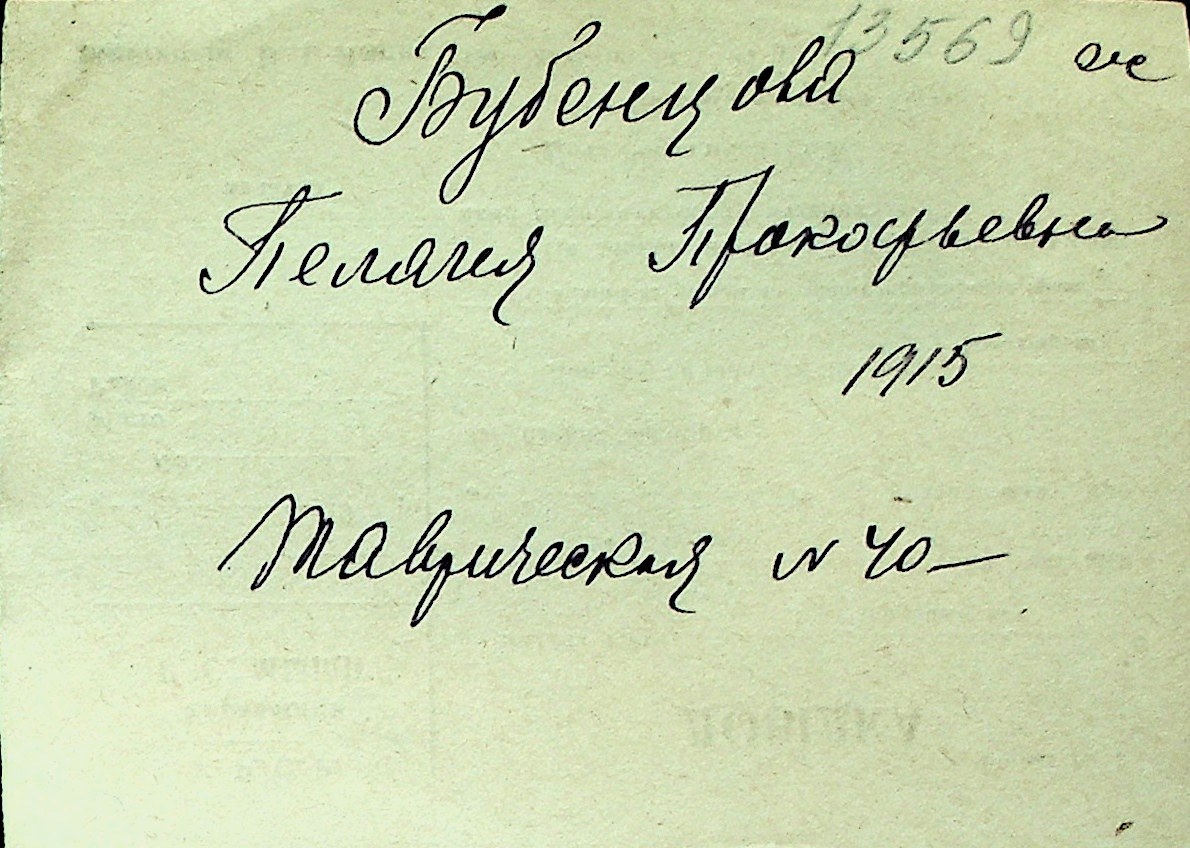 13569
Бубенцова
Пелагия Прокофьевна
1915
Таврическая N 40